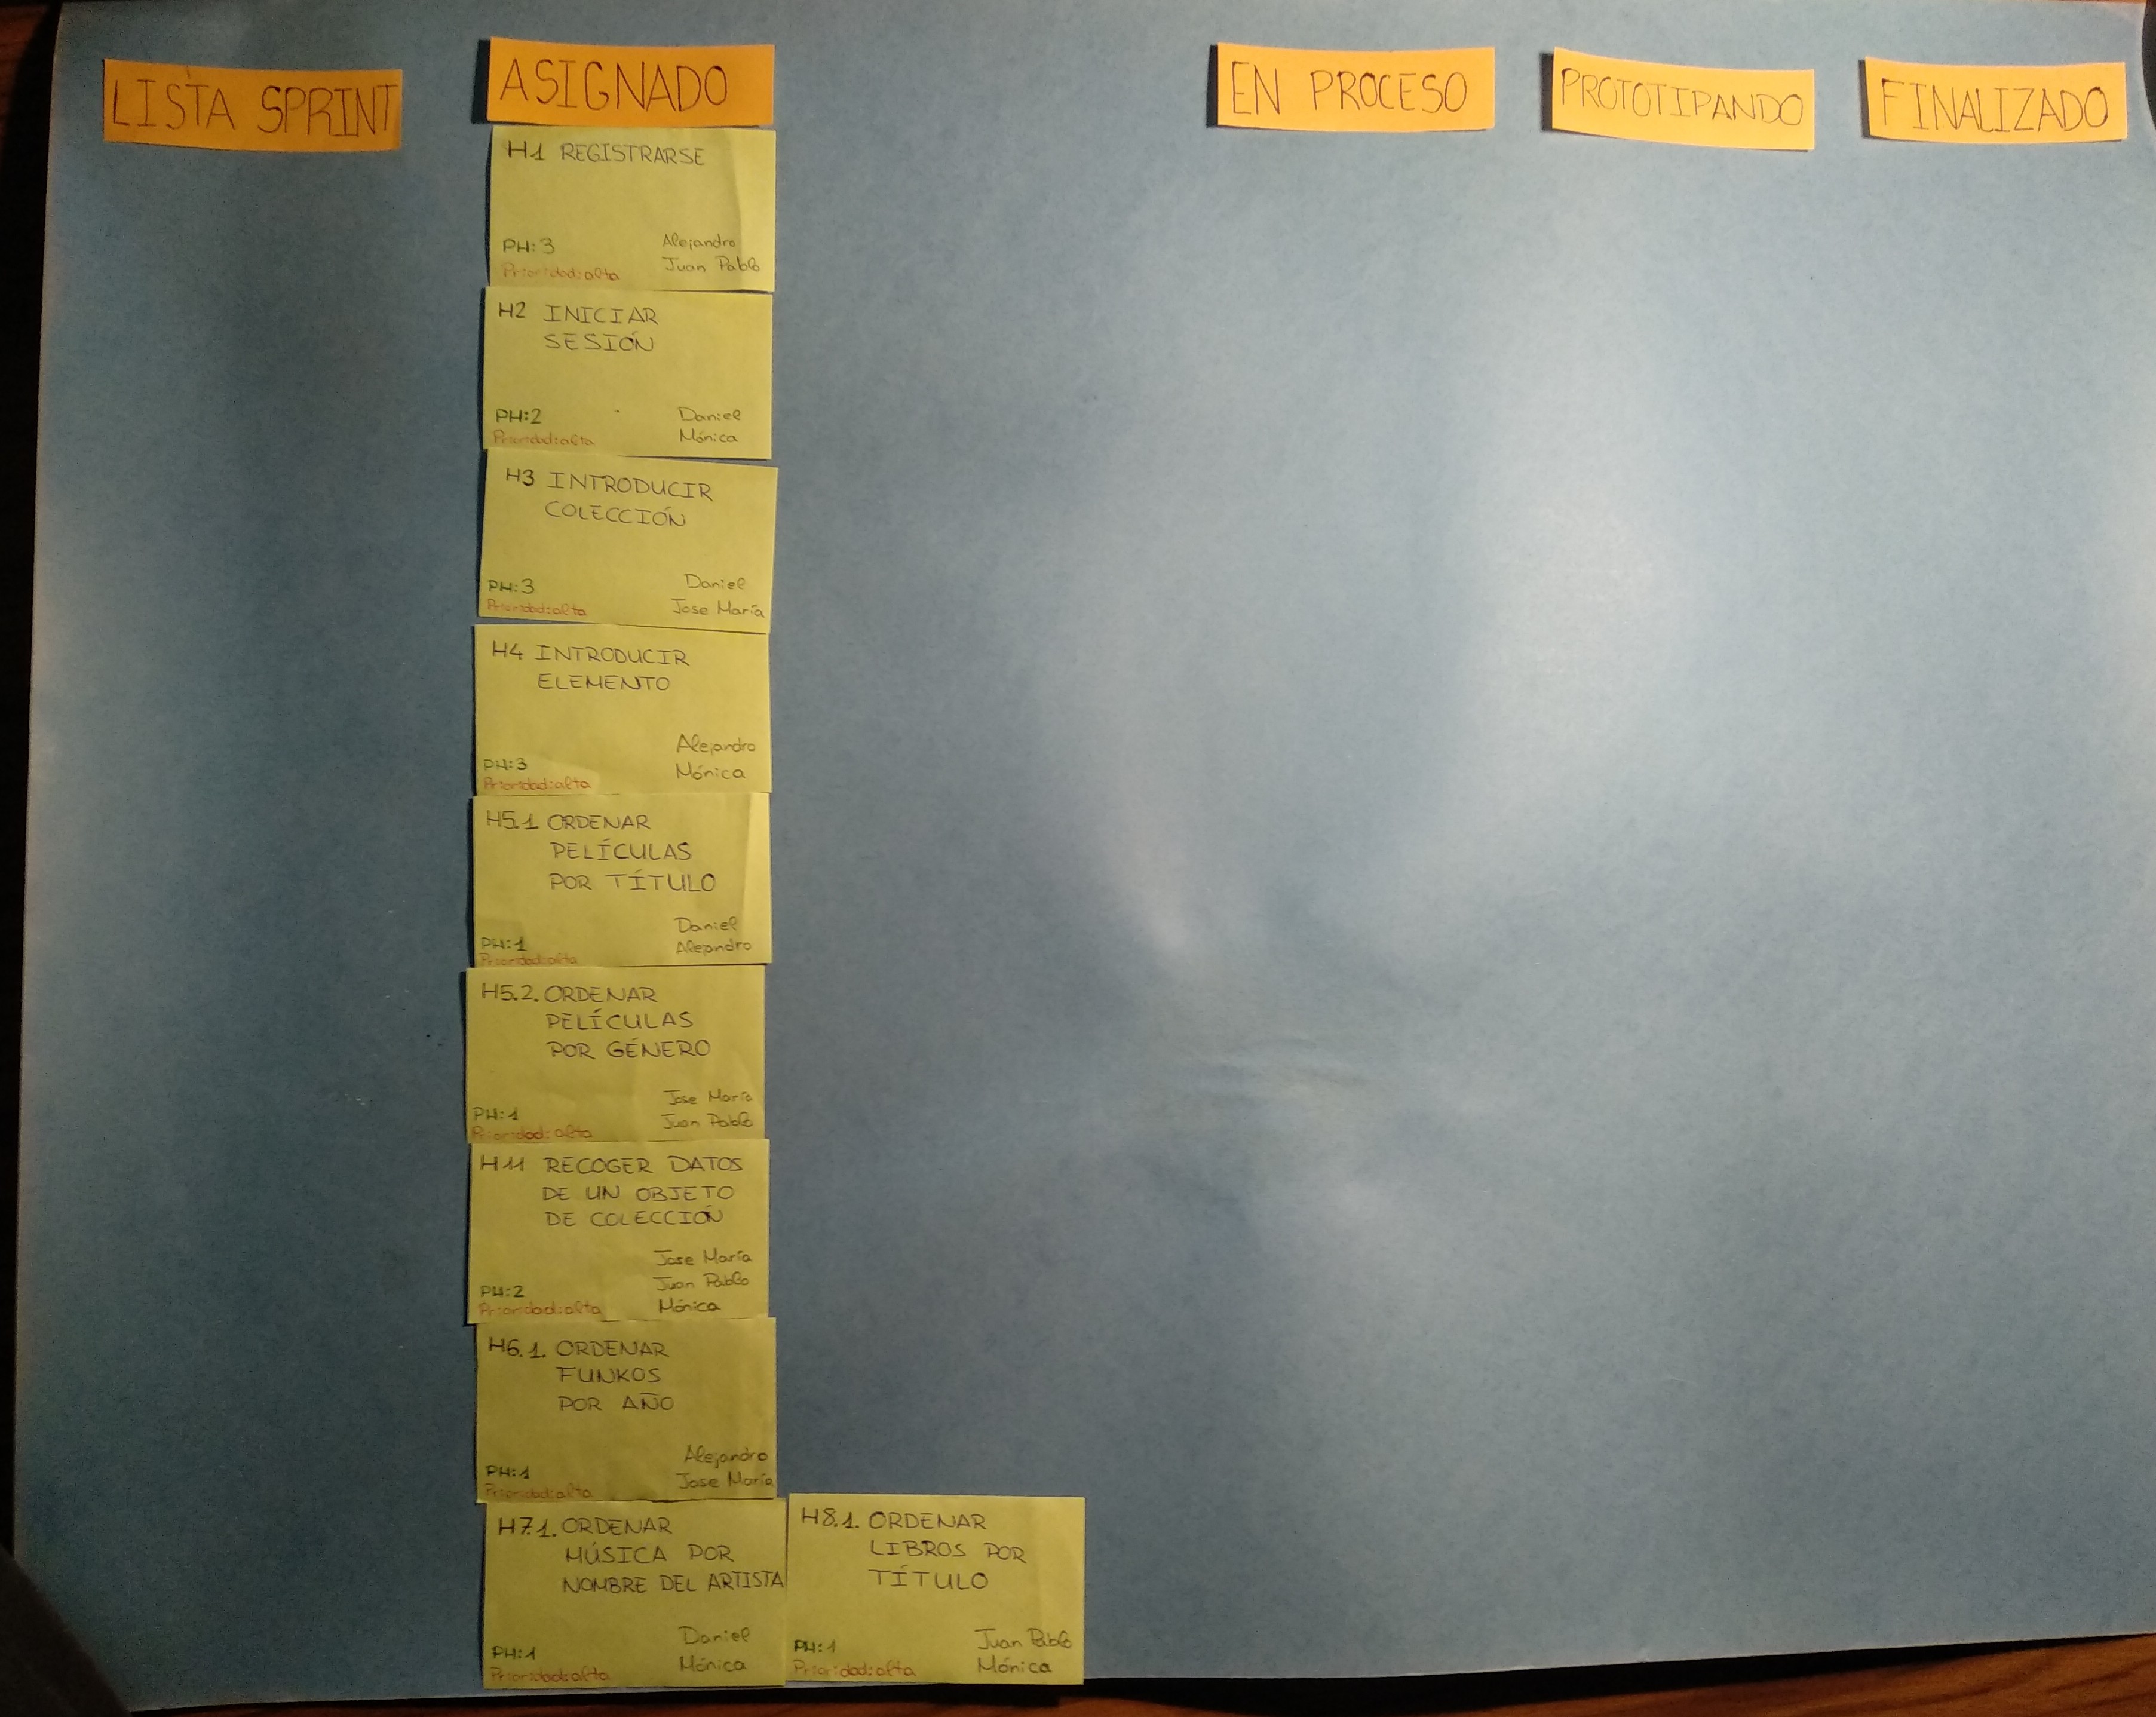 LISTA SPRINT
ASIGNADO
EN PROCESO
PROTOTIPANDO
FINALIZADO
H1 REGISTRARSE
PH:3
Prioridad:alta
Alejandro
Juan Pablo
H2 INICIAR
SESIÓN
PH:2
Prioridad:alta
Daniel
Mónica
H3 INTRODUCIR
COLECCIÓN
PH:3
Prioridad:alta
Daniel
Jose María
H4 INTRODUCIR
ELEMENTO
PH:3
Prioridad:alta
Alejandro
Mónica
H5.1 ORDENAR
PELÍCULAS
POR TÍTULO
PH:1
Prioridad:alta
Daniel
Alejandro
H5.2. ORDENAR
PELÍCULAS
POR GÉNERO
PH:1
Prioridad:alta
Jose María
Juan Pablo
H11 RECOGER DATOS
DE UN OBJETO
DE COLECCIÓN
PH:2
Prioridad:alta
Jose María
Juan Pablo
Mónica
H6.1. ORDENAR
FUNKOS
POR AÑO
PH:1
Prioridad:alta
Alejandro
Jose María
H7.1. ORDENAR
MÚSICA POR
NOMBRE DEL ARTISTA
PH:1
Prioridad:alta
Daniel
Mónica
H8.1. ORDENAR
LIBROS POR
TÍTULO
PH:1
Prioridad:alta
Juan Pablo
Mónica